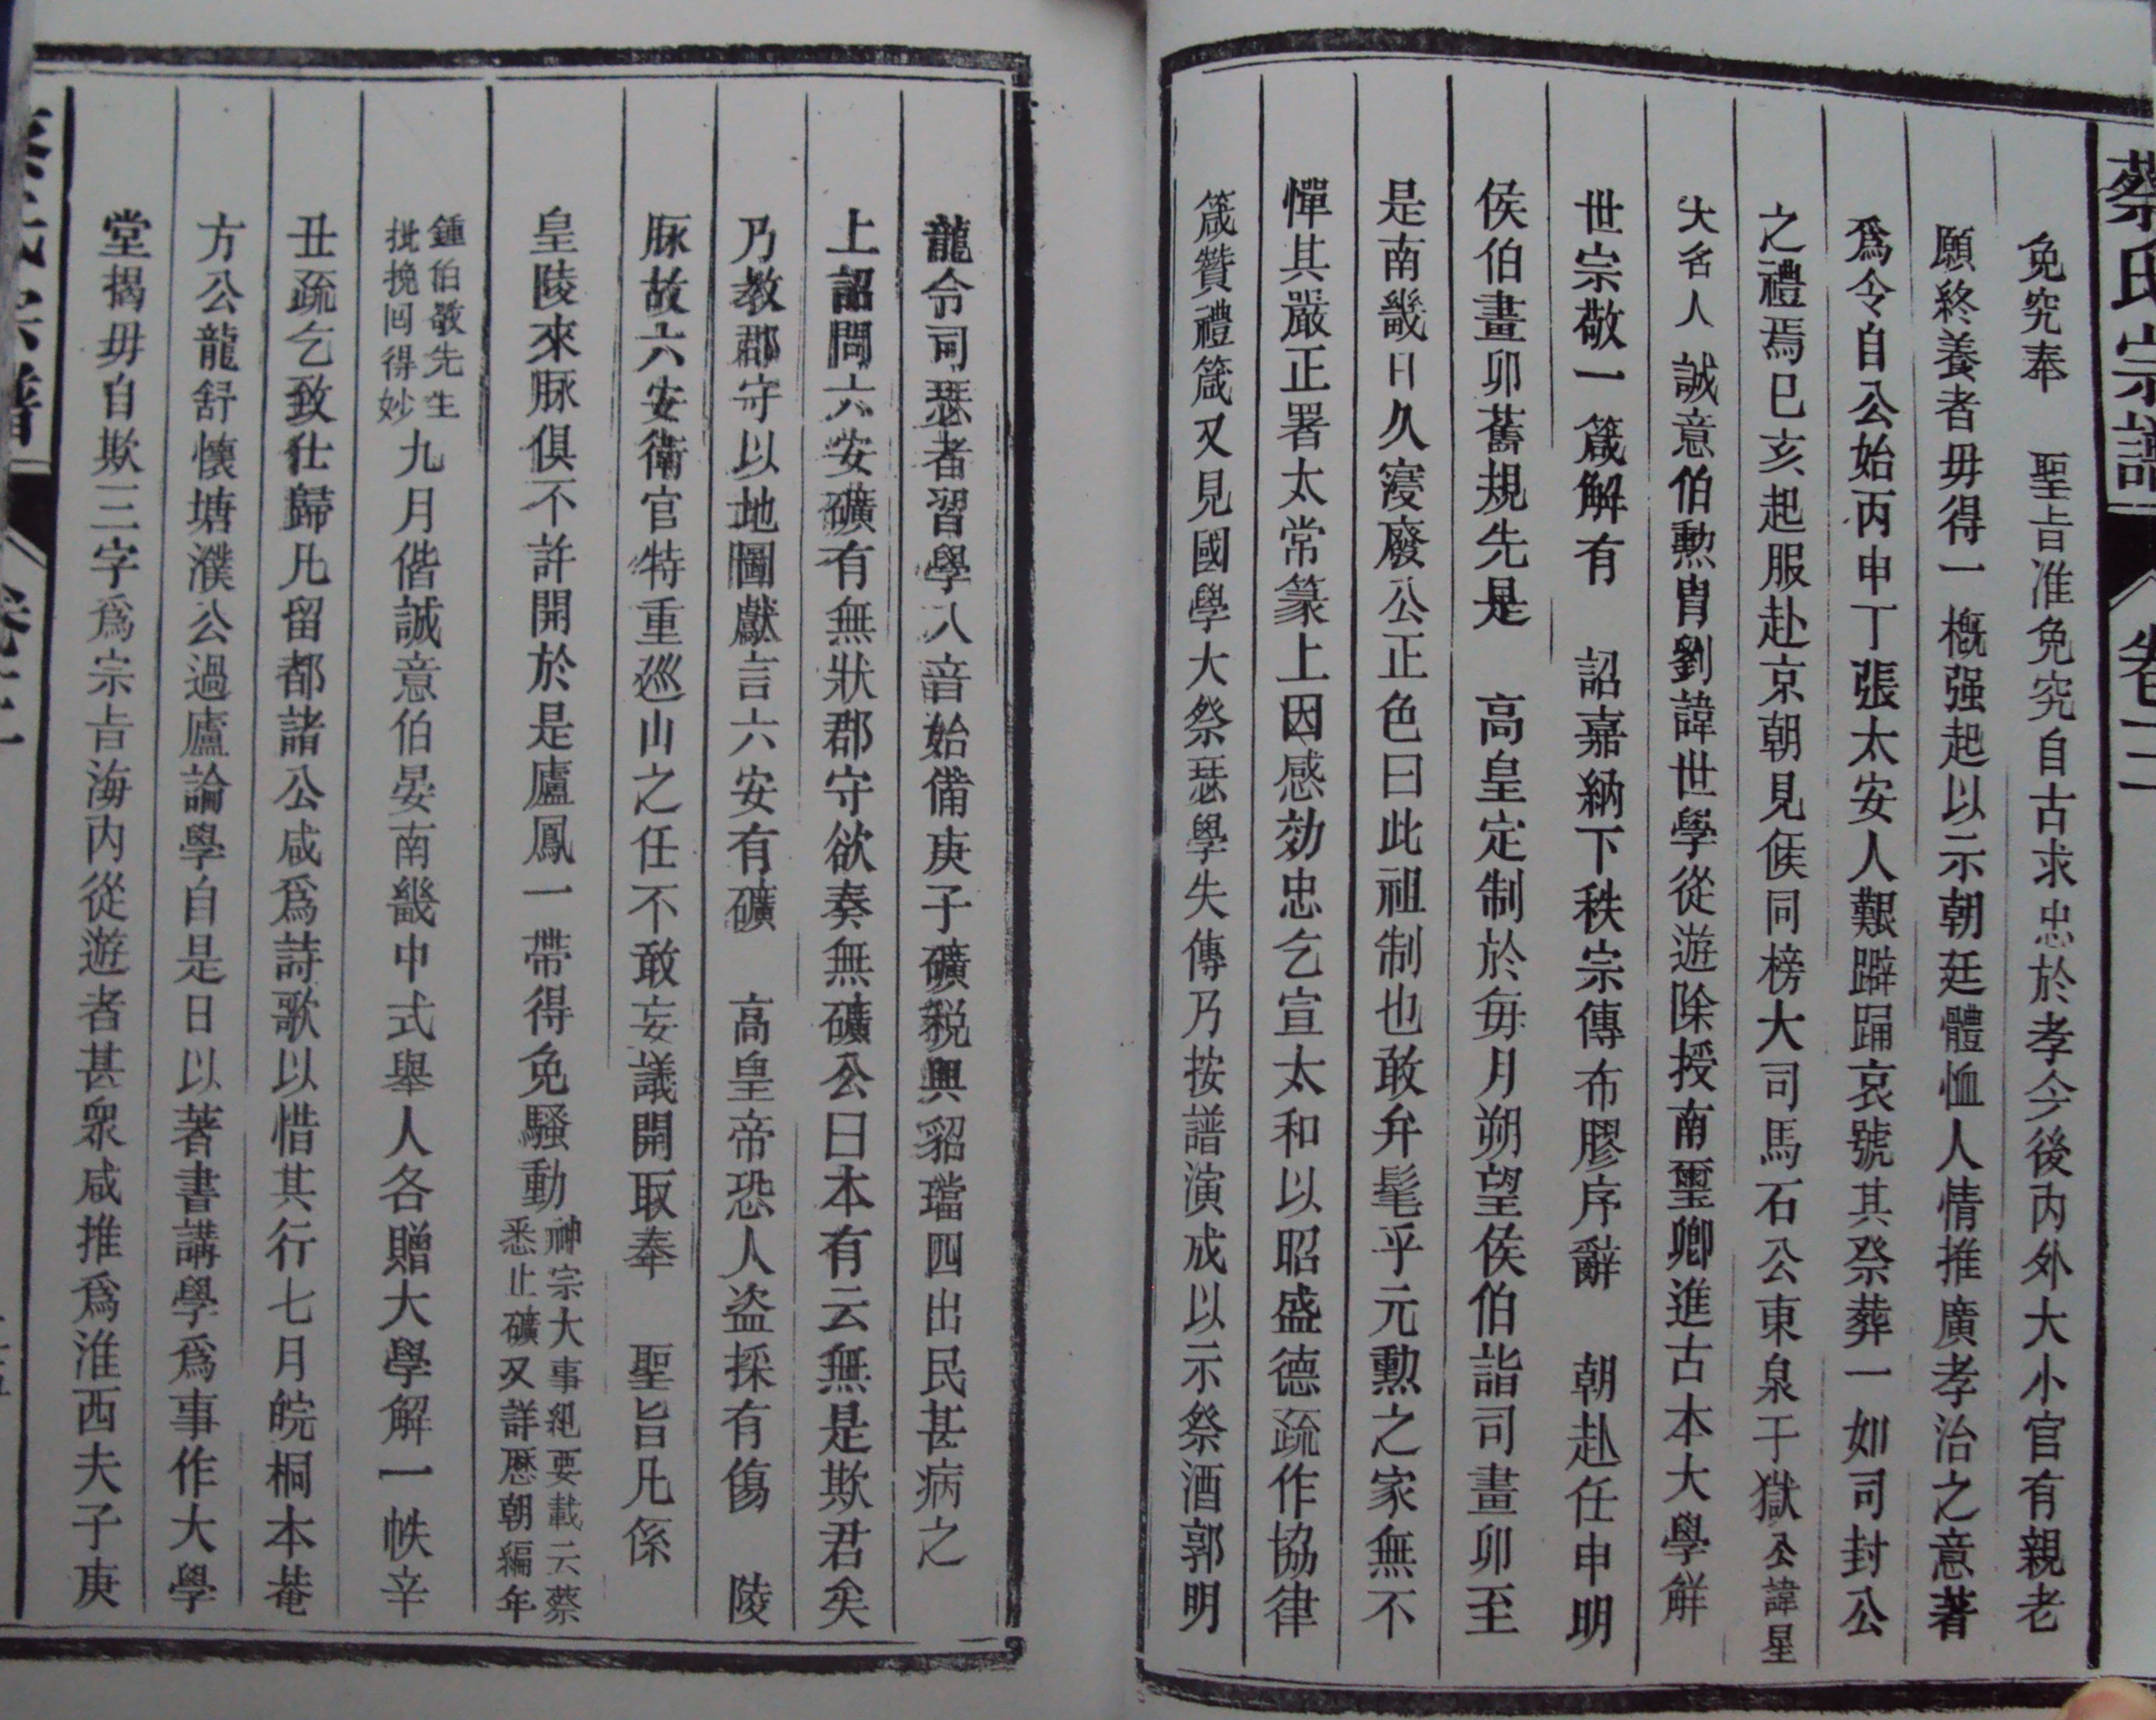 蔡氏宗譜
卷十二
免究奉　聖旨准免究自古求忠於孝今後內外大小官有親老
願終養者毋得一概强起以示朝廷體恤人情推廣孝治之意著
爲令自公始丙申丁張太安人艱躃踊哀號其祭葬一如司封公
之禮焉巳亥起服赴京朝見候同榜大司馬石公東泉于獄公諱星
大名人誠意伯勲冑劉諱世學從遊除授南璽卿進古本大學解
世宗敬一箴解有　詔嘉納下秩宗傳布膠序辭　朝赴任申明
侯伯畫卯舊規先是　高皇定制於每月朔望侯伯詣司畫卯至
是南畿日久寖廢公正色曰此祖制也敢弁髦乎元勲之家無不
憚其嚴正署太常篆上因感効忠乞宣太和以昭盛德疏作協律
箴贊禮箴又見國學大祭瑟學失傳乃按譜演成以示祭酒郭明
龍令司瑟者習學八音始備庚子礦税興貂璫四出民甚病之
上詔問六安礦有無狀郡守欲奏無礦公曰本有云無是欺君矣
乃教郡守以地圖獻言六安有礦　高皇帝恐人盜採有傷　陵
脉故六安衛官特重巡山之任不敢妄議開取奉　聖旨凡係
皇陵來脉俱不許開於是廬鳳一帶得免騷動神宗大事紀要載云蔡
悉止礦又詳歷朝編年
鍾伯敬先生
批挽回得妙九月偕誠意伯晏南畿中式舉人各贈大學解一帙辛
丑疏乞致仕歸凡留都諸公咸爲詩歌以惜其行七月皖桐本菴
方公龍舒懷塘濮公過廬論學自是日以著書講學爲事作大學
堂揭毋自欺三字爲宗旨海內從遊者甚眾咸推爲淮西夫子庚